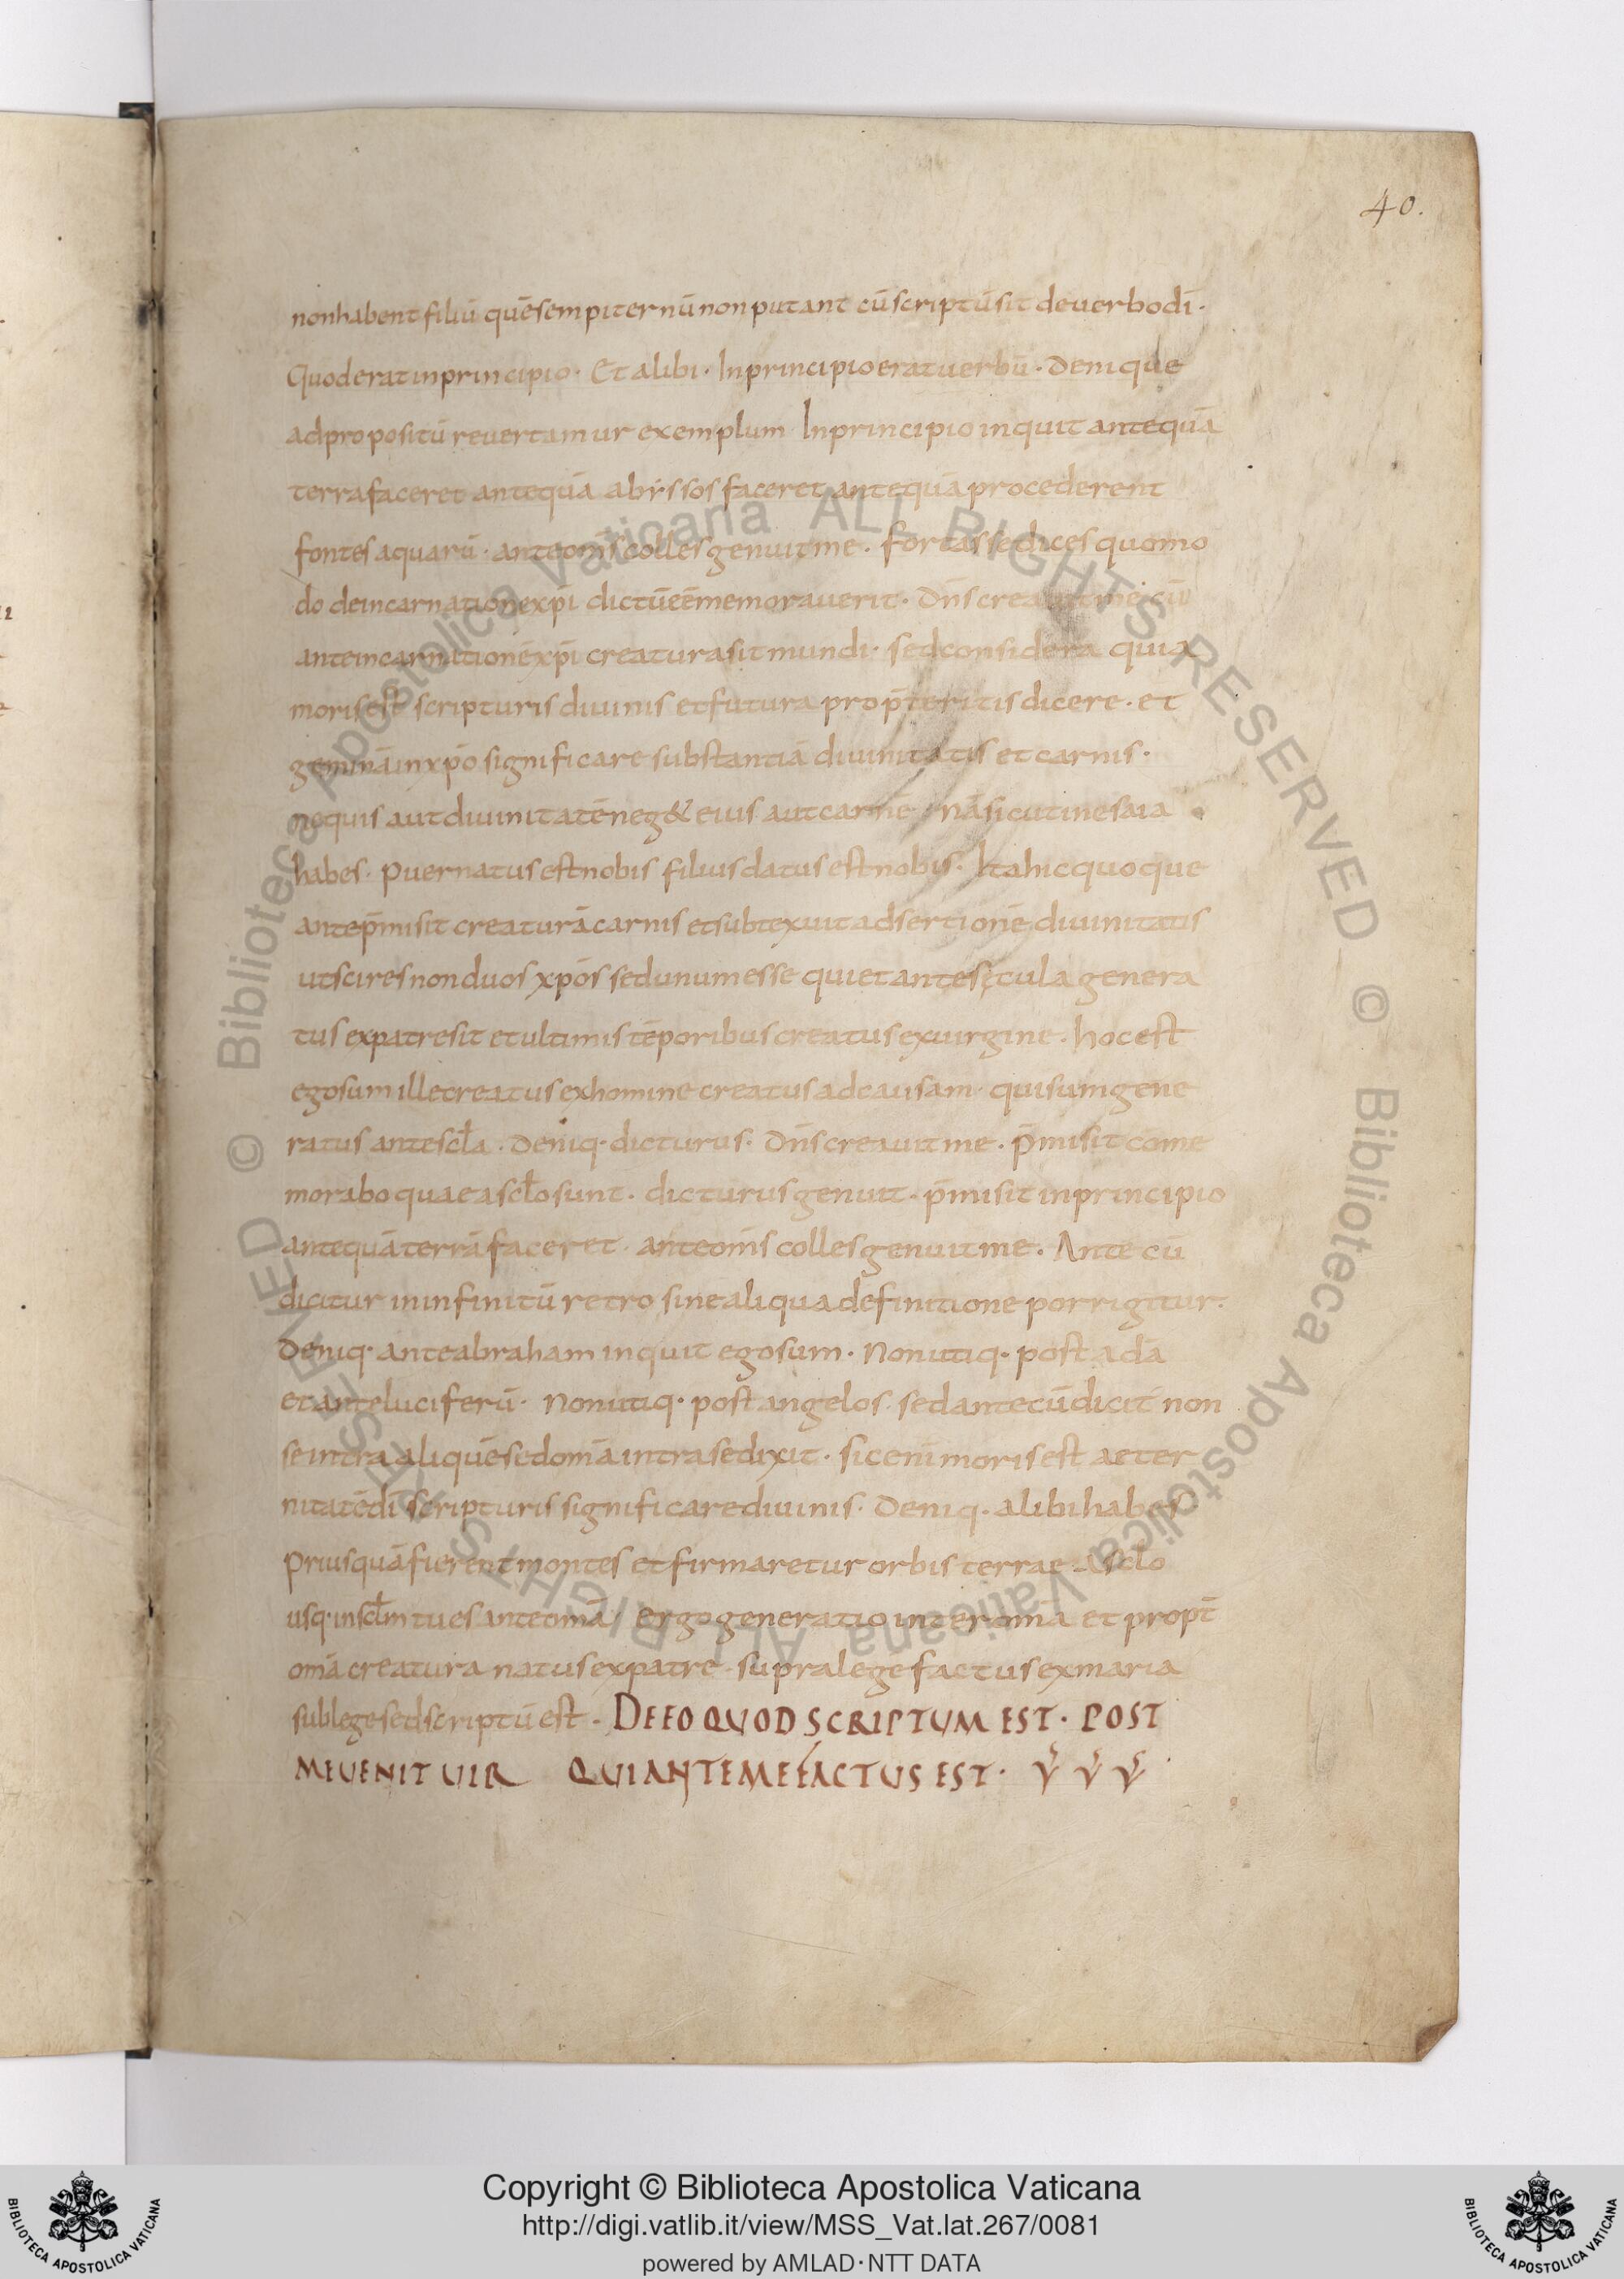 40.
non habent filiū quē sempiternū non putant cū scriptū sit de uerbo dī·
Quod erat in principio· Et alibi· In principio erat uerbū· Denique
ad propositū reuertamur exemplum In principio inquit antequā
terra faceret antequā abyssos faceret antequā procederent
fontes aquarū· ante om̄s colles genuit me· fortasse dices quomo
do de incarnationē xp̄i dictū eē memorauerit· Dn̄s creauit me cū
ante incarnationē xp̄i creatura sit mundi· sed considera quia
moris est scripturis diuinis et futura pro p̄teritis dicere· et
geminā in xp̄o significare substantiā diuinitatis et carnis·
nequis aut diuinitatē neg& eius aut carnē nā sicut in esaia
habes· Puer natus est nobis filius datus est nobis· Ita hic quoque
ante p̄misit creaturā carnis et subtexuit adsertionē diuinitatis
ut scires non duos xp̄os sed unum esse qui et ante sęcula genera
tus ex patre sit et ultimis tēporibus creatus ex uirgine· hoc est
ego sum ille creatus ex homine creatus ad causam· qui sum gene
ratus ante scl̄a· Deniq· dicturus· Dn̄s creauit me· p̄misit cōme
morabo quae a scl̄o sunt· dicturus genuit· p̄misit in principio
antequā terrā faceret· ante om̄s colles genuit me· Ante cū
dicitur in infinitū retro sine aliqua definitione porrigitur·
Deniq· ante abraham inquit ego sum· Non utiq· post adā
et ante luciferū· Non utiq· post angelos· sed ante cū dicit non
se intra aliquē sed om̄a intra se dixit· sic eni moris est aeter
nitatē dī scripturis significare diuinis· Deniq· alibi habes
Priusquā fierent montes et firmaretur orbis terrae a scl̄o
usq· in scl̄m tu es ante om̄a ergo generatio inter om̄a et propt̄
om̄a creatura natus ex patre· supra legē factus ex maria
sub lege sed scriptū est· DE EO QUOD SCRIPTUM EST· POST
ME UENIT UIR QUI ANTE ME FACTUS EST·
© Biblioteca Apostolica Vaticana ALL RIGHTS RESERVED © Biblioteca Apostolica Vaticana ALL RIGHTS RESERVED
Copyright © Biblioteca Apostolica Vaticana
http://digi.vatlib.it/view/MSS_Vat.lat.267/0081
powered by AMLAD·NTT DATA
BIBLIOTECA APOSTOLICA VATICANA
BIBLIOTECA APOSTOLICA VATICANA